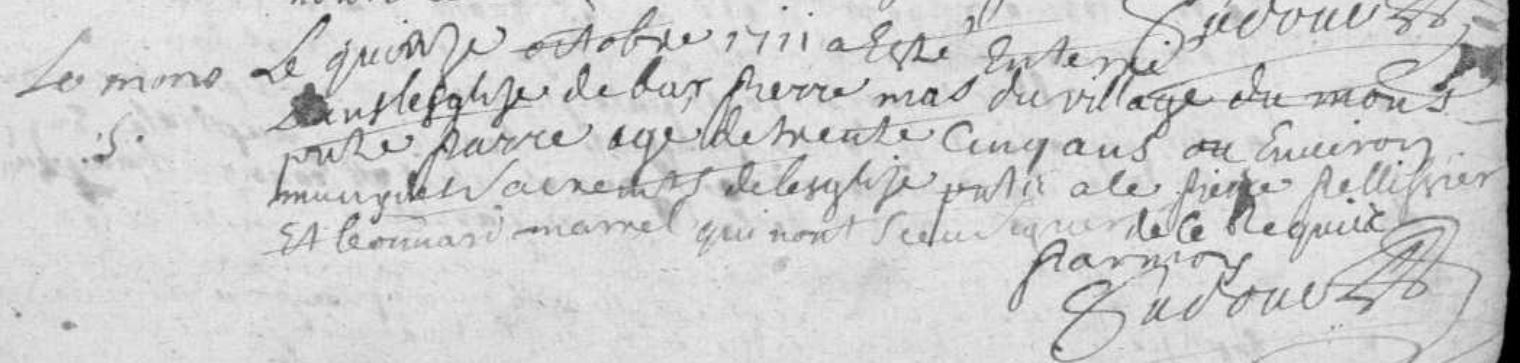 Sudour
Le mons Le quinze octobre 1711 a Esté Enterré
dans lesglise de bar pierre mas du village du mons
S. pnte parre age de trente Cinq ans ou Environ
muny des Sacrements de lesglise pntz a ce pierre pellissier
Et leonnard marrel qui nont sceu signer de ce Requis
par moy
Sudour